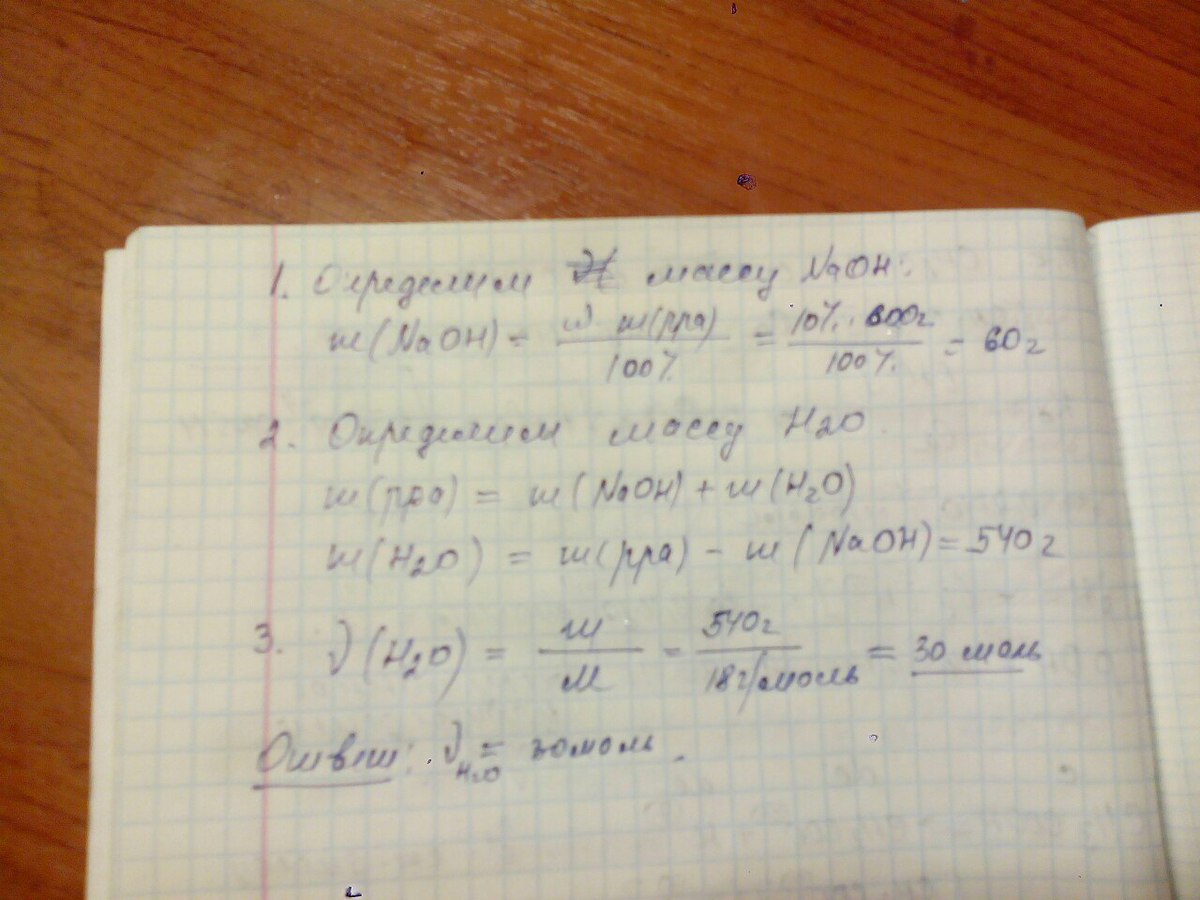 1. Определим массу NaOH:
m(NaOH) = ω m(рра) / 100% = 10% · 600г / 100% = 60г
2. Определим массу H2O
m(рра) = m(NaOH) + m(H2O)
m(H2O) = m(рра) - m(NaOH) = 540г
3. ν(H2O) = m / M = 540г / 18г/моль = 30 моль
Ответ: ν H2O = 30моль.